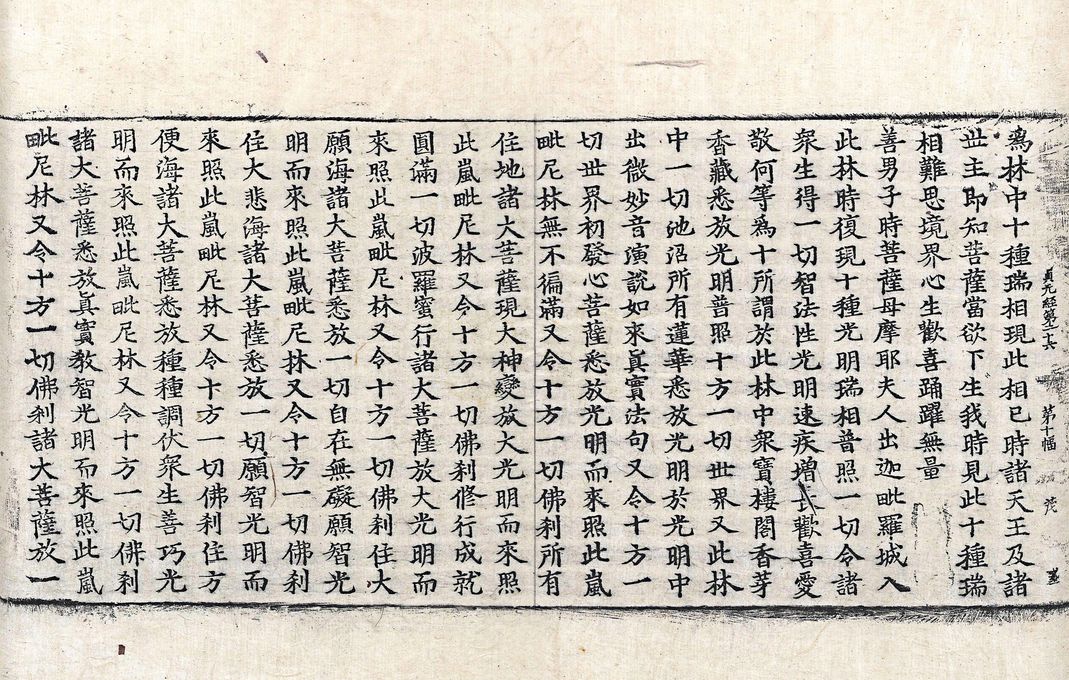 爲林中十種瑞相現此相已時諸天王及諸
世主即知菩薩當欲下生我時見此十種瑞
相難思境界心生歡喜踊躍無量
貞元經第二六 第十幅 茂
善男子時菩薩母摩耶夫人出迦毗羅城入
此林時復現十種光明瑞相普照一切令諸
衆生得一切智法性光明速疾增長歡喜愛
敬何等爲十所謂於此林中衆寶樓閣香芽
香藏悉放光明普照十方一切世界又此林
中一切池沼所有蓮華悉放光明於光明中
出微妙音演說如來真實法句又令十方一
切世界初發心菩薩悉放光明而來照此嵐
毗尼林無不徧滿又令十方一切佛刹所有
住地諸大菩薩現大神變放大光明而來照
此嵐毗尼林又令十方一切佛刹修行成就
圓滿一切波羅蜜行諸大菩薩放大光明而
來照此嵐毗尼林又令十方一切佛刹住大
願海諸大菩薩悉放一切自在無礙願智光
明而來照此嵐毗尼林又令十方一切佛刹
住大悲海諸大菩薩悉放一切願智光明而
來照此嵐毗尼林又令十方一切佛刹住方
便海諸大菩薩悉放種種調伏衆生善巧光
明而來照此嵐毗尼林又令十方一切佛刹
諸大菩薩悉放真實教智光明而來照此嵐
毗尼林又令十方一切佛刹諸大菩薩放一